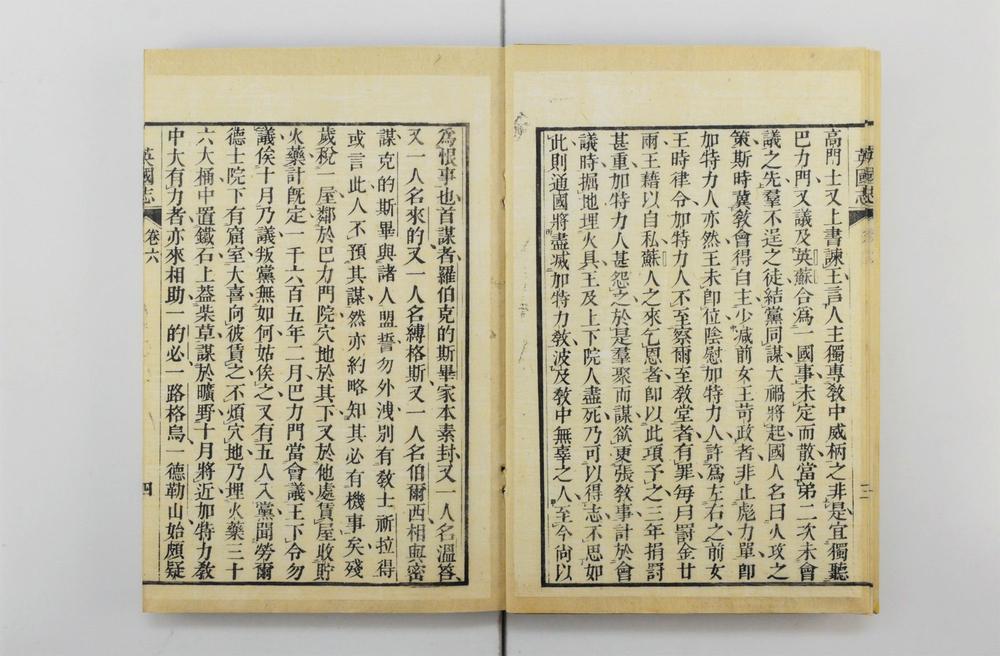 高門士又上書諫王言人主獨專敎中威柄之非是宜獨聽
巴力門又議及英蘇合爲一國事未定而散當第二次未會
議之先羣不逞之徒結黨同謀大禍將起國人名曰火攻之
策斯時冀敎會得自主少減前女王苛政者非止彪力單卽
加特力人亦然王未卽位陰慰加特力人許爲左右之前女
王時律令加特力人不至察爾至敎堂者有罪每月罰金廿
兩王藉以自私蘇人之來乞恩者卽以此項予之三年捐罸
甚重加特力人甚怨之於是羣聚而謀欲更張敎事計於會
議時掘地埋火具王及上下院人盡死乃可以得志不思如
此則通國將盡滅加特力敎波及敎中無辜之人至今尙以
英國志
三
爲恨事也首謀者羅伯克的斯畢家本素封又一人名溫答
又一人名來的又一人名縛格斯又一人名伯爾西相與密
謀克的斯畢與諸人盟誓勿外洩別有敎士祈拉得
或言此人不預其謀然亦約略知其必有機事矣殘
歲稅一屋鄰於巴力門院穴地於其下又於他處賃屋收貯
火藥計旣定一千六百五年二月巴力門當會議王下令勿
議俟十月乃議叛黨無如何姑俟之又有五人入黨聞勞爾
德士院下有窟室大喜向彼賃之不煩穴地乃埋火藥三十
六大桶中置鐵石上蓋柴草謀於曠野十月將近加特力敎
中大有力者亦來相助一的必一路格烏一德勒山始頗疑
英國志
卷六
四